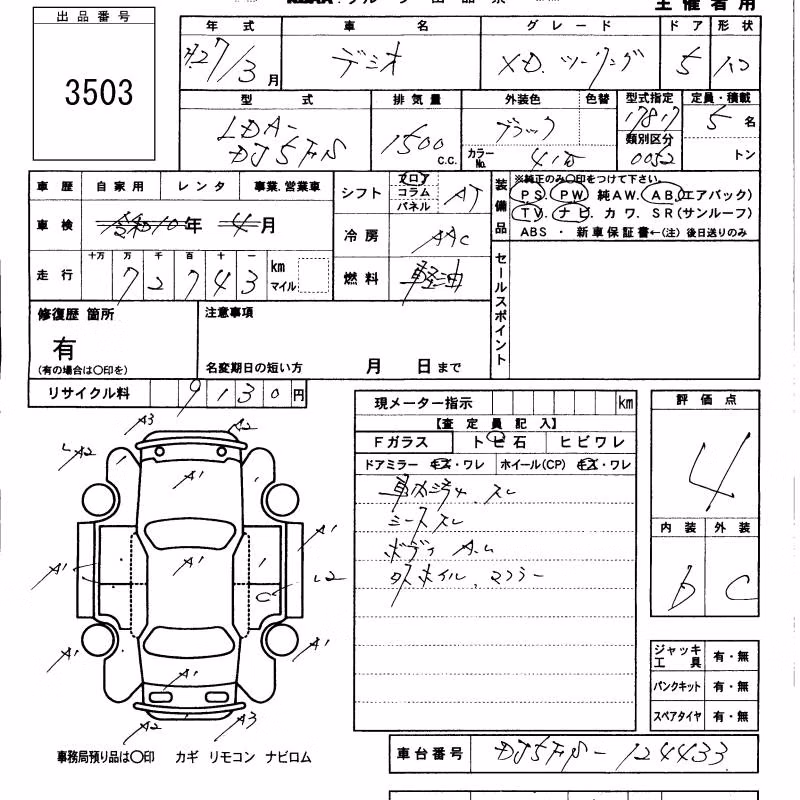 主催者用
出品番号
3503
年式 車名 グレード ドア 形状
H.27/3月 デミオ XD ツーリング 5 ハコ
型式 排気量 外装色 色替 型式指定 定員・積載
LDA-DJ5FS 1500 c.c. ブラック 17817 5名
カラーNo. 類別区分 0052 トン
車歴 自家用 レンタ 事業.営業車
シフト フロア コラム パネル AT
車検 令和10年 4月
冷房 AAC
走行 十万 万 千 百 十 一
72743 km マイル
燃料 軽油
装備品
※純正のみ○印をつけて下さい。
PS. PW. 純AW. AB.(エアバック)
TV. ナビ. カワ. SR(サンルーフ)
ABS ・ 新車保証書←(注) 後日送りのみ
セールスポイント
修復歴 箇所
有
(有の場合は○印を)
注意事項
名変期日の短い方 月 日まで
リサイクル料 9130円
現メーター指示 km
【査定員記入】
Fガラス トビ石 ヒビワレ
ドアミラー キズ・ワレ ホイール(CP) キズ・ワレ
車内汚れ、スレ
シートスレ
ボディ A.U
タイホイル、マフラー
評価点
4
内装 外装
b C
A3 A2
A2
A1
A1
A1 A1
A1
L2
C
A1 A1
A1
A2 A3
ジャッキ工具 有・無
パンクキット 有・無
スペアタイヤ 有・無
事務局預り品は○印 カギ リモコン ナビロム
車台番号 DJ5FS-124433